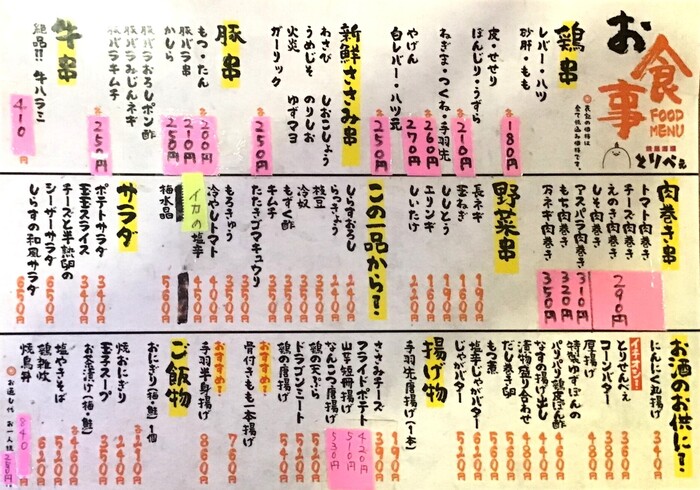 お食事
FOOD MENU
居酒屋
とりべえ
鶏串
レバー・ハツ
砂肝・もも
各180円
皮・せせり
ぼんじり・うずら
各210円
ねぎま・つくね・手羽先
各260円
やげん
270円
白レバー・ハツ元
各250円
新鮮ささみ串
わさび しおこしょう
うめじそ のりしお
火炎 ゆずマヨ
ガーリック
各250円
豚串
もつ・たん
かしら
各200円
豚バラ串
210円
豚バラおろしポン酢
250円
豚バラみじんネギ
豚バラキムチ
各250円
牛串
絶品!! 牛ハラミ
410円
肉巻き串
トマト肉巻き
チーズ肉巻き
えのき肉巻き
しそ肉巻き
各290円
アスパラ肉巻き
310円
もち肉巻き
320円
万ネギ肉巻き
350円
野菜串
長ネギ
190円
茎ねぎ
190円
ししとう
160円
エリンギ
190円
しいたけ
220円
この一品から?
しらすおろし
らっきょう
枝豆
冷奴
もずく酢
キムチ
たたきゴマキュウリ
350円
もろきゅう
350円
冷やしトマト
400円
イカの塩辛
450円
梅水晶
560円
サラダ
ポテトサラダ
340円
玉玉スライス
340円
チーズと半熟卵の
シーザーサラダ
650円
しらすの和風サラダ
650円
お酒のお供に?
にんにく丸揚げ
340円
イチオシ!
とりせんべえ
360円
コーンバター
380円
厚揚げ
380円
特製ゆずぽんの
パリパリ鶏皮ぽん酢
460円
なすの揚げ出し
440円
漬物盛り合わせ
480円
だし巻き卵
580円
もつ煮
520円
塩辛じゃがバター
620円
じゃがバター
揚げ物
手羽先唐揚げ(1本)
190円
ささみチーズ
フライドポテト
420円
山芋短冊揚げ
510円
なんこつ唐揚げ
530円
ドラゴンミート
520円
鶏の天ぷら
520円
鶏の唐揚げ
540円
おすすめ!
骨付きもも一本揚げ
760円
おすすめ!
手羽半身揚げ
860円
ご飯物
おにぎり(梅・鮭)1個
焼おにぎり
240円
玉子スープ
350円
お茶漬け(梅・鮭)
各460円
塩やきそば
520円
鶏雑炊
620円
焼鳥丼
840円